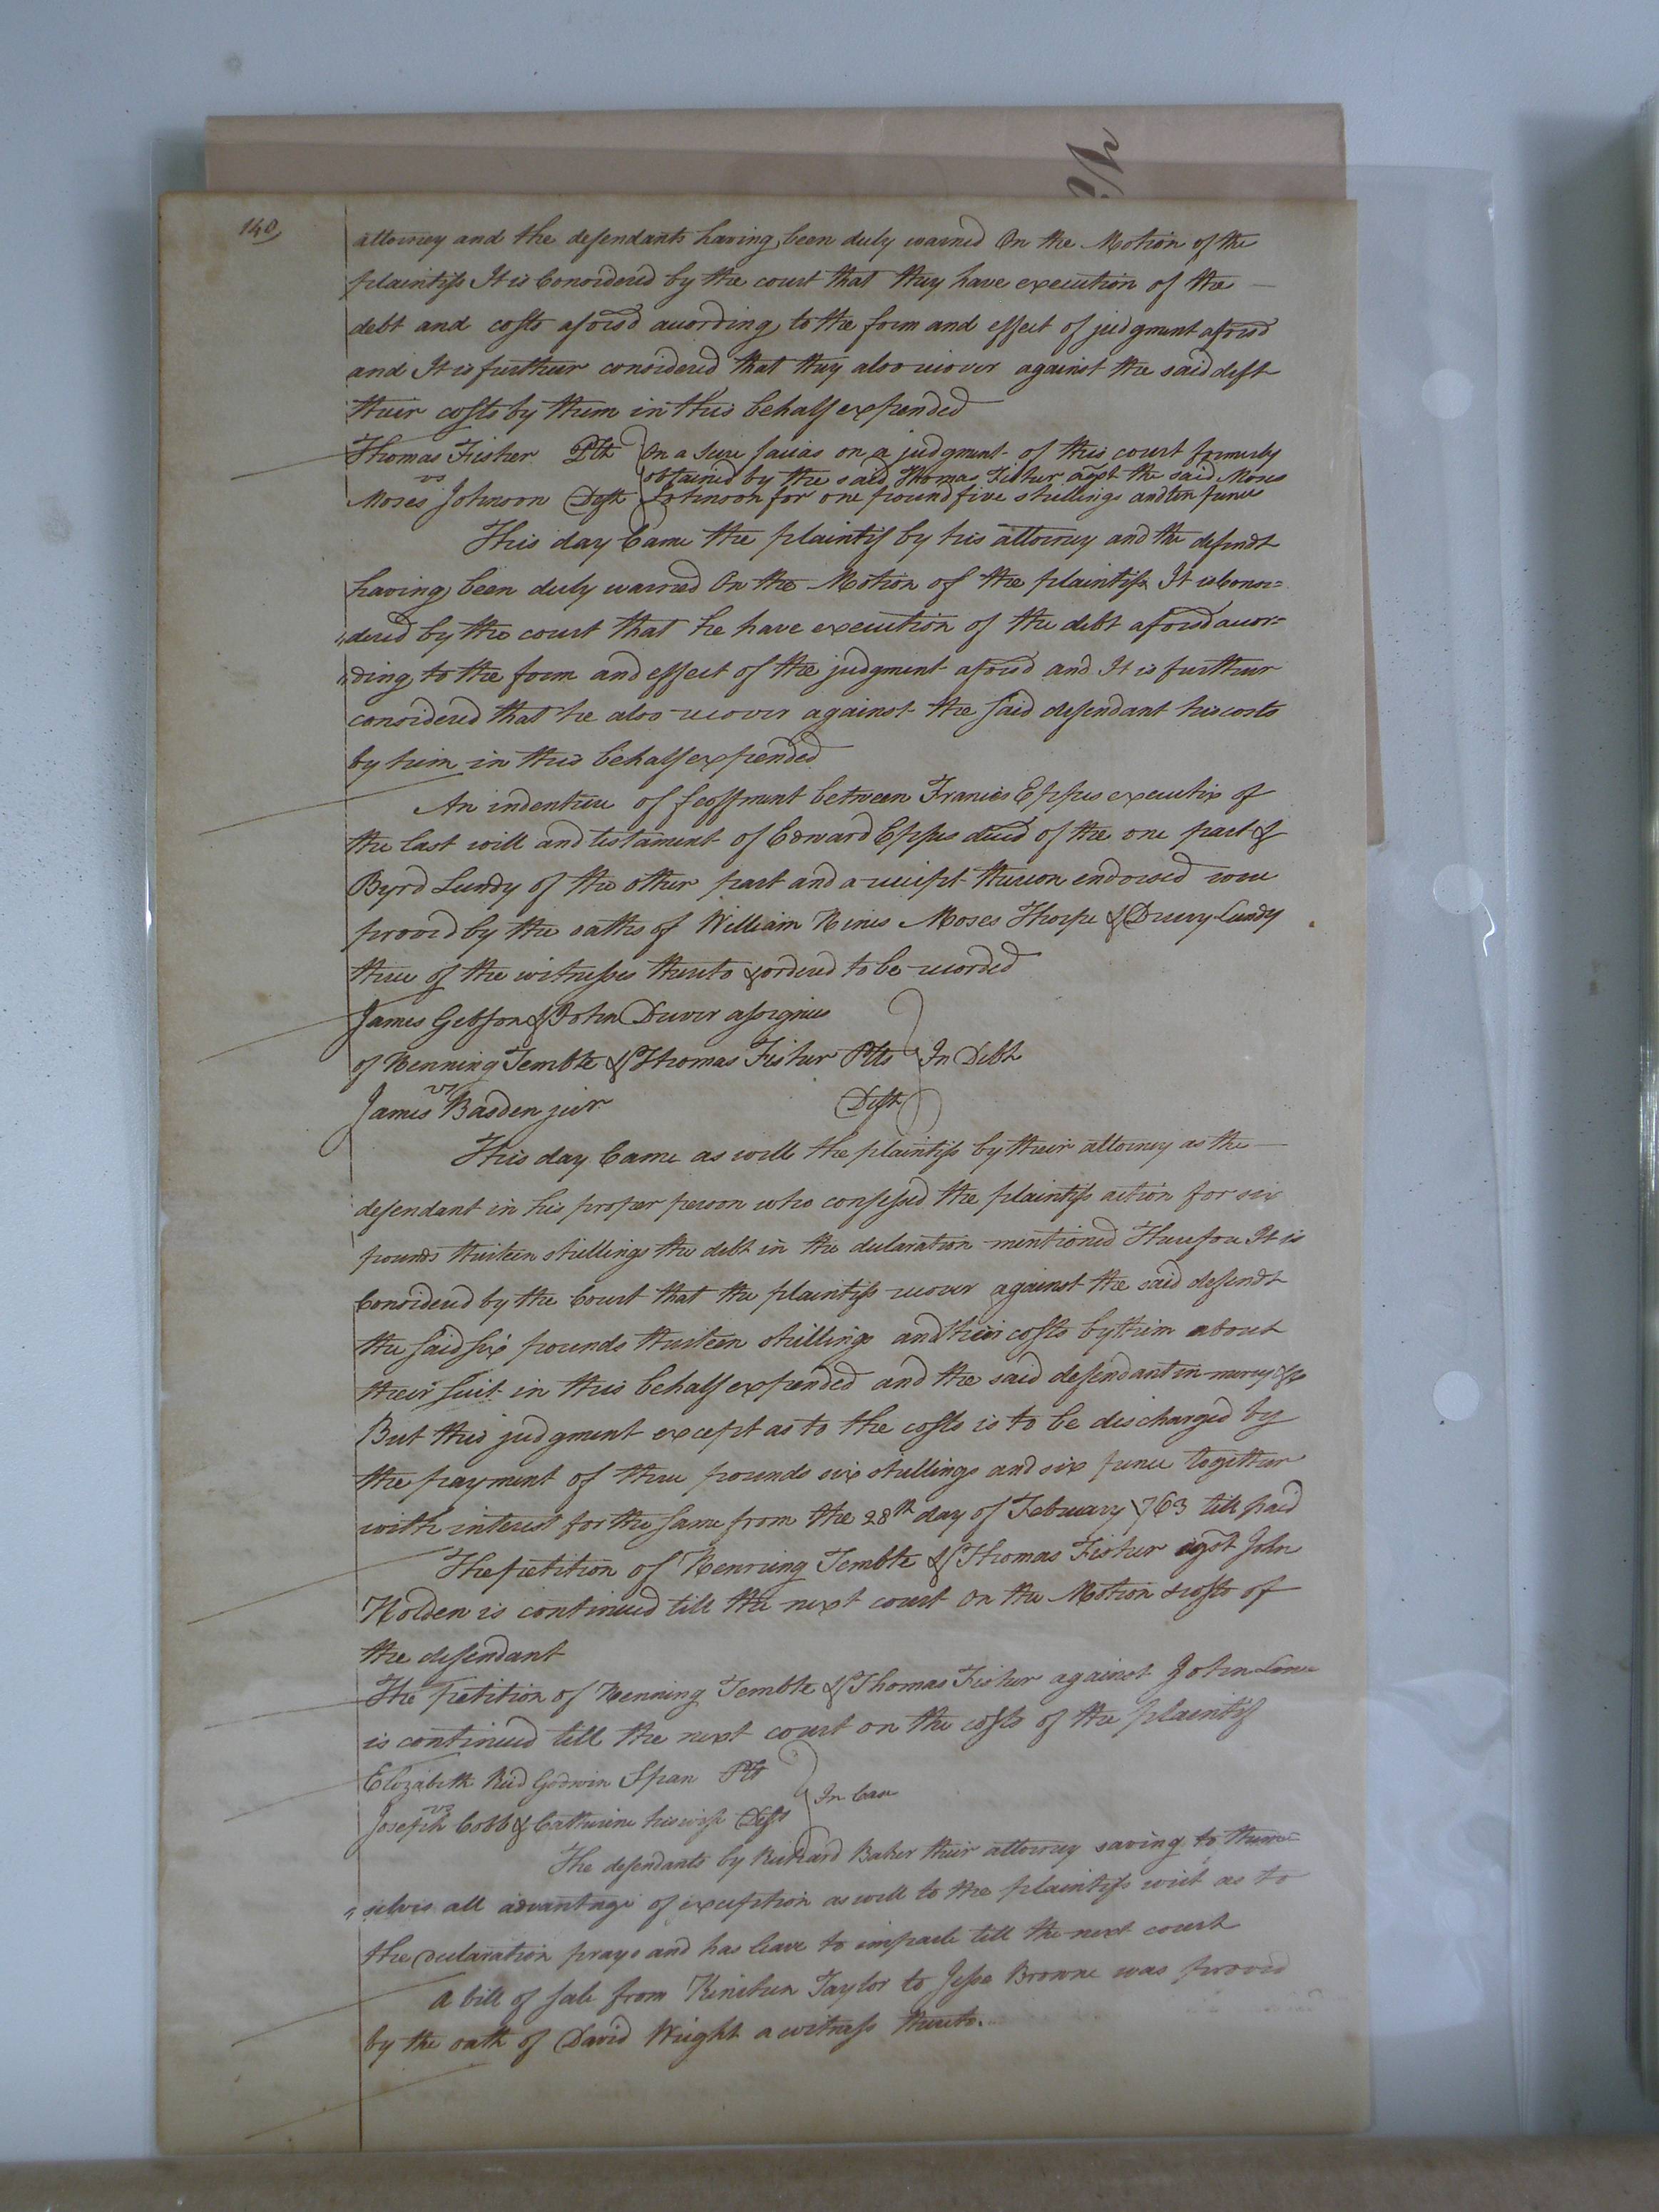 140
attorney and the defendants having been duly warned On the Motion of the
plaintifs It is Considered by the court that they have execution of the
debt and costs aforesd according to the form and effect of judgment aforesd
and It is further considered that they also recover against the said deft
their costs by them in this behalf expended
Thomas Fisher Plt On a Scire facias on a judgment of this court formerly
vs obtained by the said Thomas Fisher agst the said Moses
Moses Johnson Deft Johnson for one pound five shillings and ten pence
This day Came the plaintif by his attorney and the defendt
having been duly warned On the Motion of the plaintif It is Consi=
dered by the court that he have execution of the debt aforesd accor=
ding to the form and effect of the judgment aforesd and It is further
considered that he also recover against the said defendant his costs
by him in this behalf expended
An indenture of feoffment between Francis Eppes executrix of
the last will and testament of Edward Eppes deced of the one part &
Byrd Lundy of the other part and a receipt thereon endorsed were
proved by the oaths of William Hines Moses Thorpe & Drury Lundy
three of the witnesses thereto & ordered to be recorded
James Gibson & John Driver assignees
of Henning Tembte & Thomas Fisher Plts In Debt
vs
James Basden junr Deft
This day Came as well the plaintifs by their attorney as the
defendant in his proper person who confessed the plaintifs action for six
pounds thirteen shillings the debt in the declaration mentioned Therefore It is
Considered by the Court that the plaintifs recover against the said defendt
the said six pounds thirteen shillings and their costs by them about
their suit in this behalf expended and the said defendant in mercy &c
But this judgment except as to the costs is to be discharged by
the payment of three pounds six shillings and six pence together
with interest for the same from the 28th day of February 1763 till paid
The petition of Henning Tembte & Thomas Fisher agst John
Holden is continued till the next court on the Motion & costs of
the defendant
The petition of Henning Tembte & Thomas Fisher against John
is continued till the next court on the costs of the plaintif
Elizabeth Reid Godwin Span Plt
vs In Case
Joseph Cobb & Catherine his wife Defts
The defendants by Richard Baker their attorney saving to them=
selves all advantage of exception as well to the plaintifs writ as to
the declaration prays and has leave to imparle till the next court
A bill of sale from Taylor to Jesse Browne was proved
by the oath of David Wright a witness thereto.